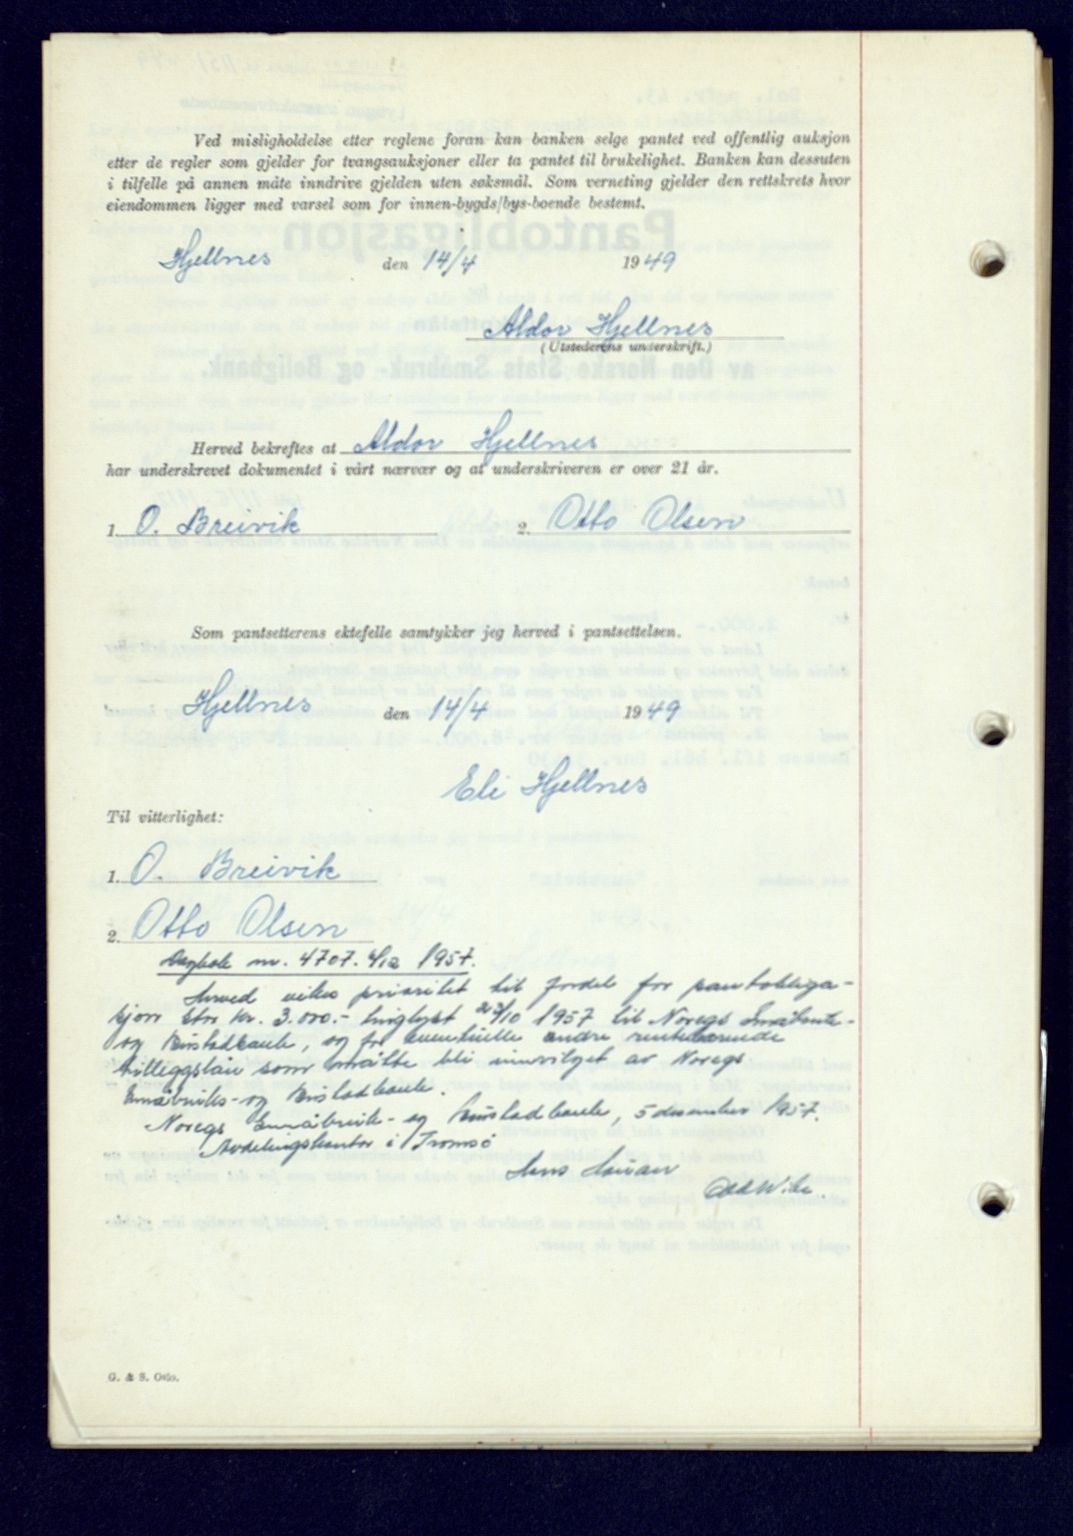 Ved misligholdelse etter reglene foran kan banken selge pantet ved offentlig auksjon
etter de regler som gjelder for tvangsauksjoner eller ta pantet til brukelighet. Banken kan dessuten
i tilfelle på annen måte inndrive gjelden uten søksmål. Som verneting gjelder den rettskrets hvor
eiendommen ligger med varsel som for innen-bygds/bys-boende bestemt.
Hjellnes den 14/4 1949
Aldor Hjellnes
(Utstederens underskrift.)
Herved bekreftes at Aldor Hjellnes
har underskrevet dokumentet i vårt nærvær og at underskriveren er over 21 år.
1. O. Breivik 2. Otto Olsen
Som pantsetterens ektefelle samtykker jeg herved i pantsettelsen.
Hjellnes den 14/4 1949
Eli Hjellnes
Til vitterlighet:
1. O. Breivik
2. Otto Olsen
Dagbok nr. 4707. 4/12 1957.
Herved vikes prioritet til fordel for pantobliga-
sjon stor kr. 3.000.- tinglyst 23/10 1957 til Noregs Småbruk-
og Bustadbank, og for eventuelle andre rentebærende
tilleggslån som måtte bli innvilget av Noregs
Småbruks- og Bustadbank.
Noregs Småbruk- og Bustadbank, 5 desember 1957.
Avdelingskontor i Tromsø
Hans
Odd
G. & S. Oslo.